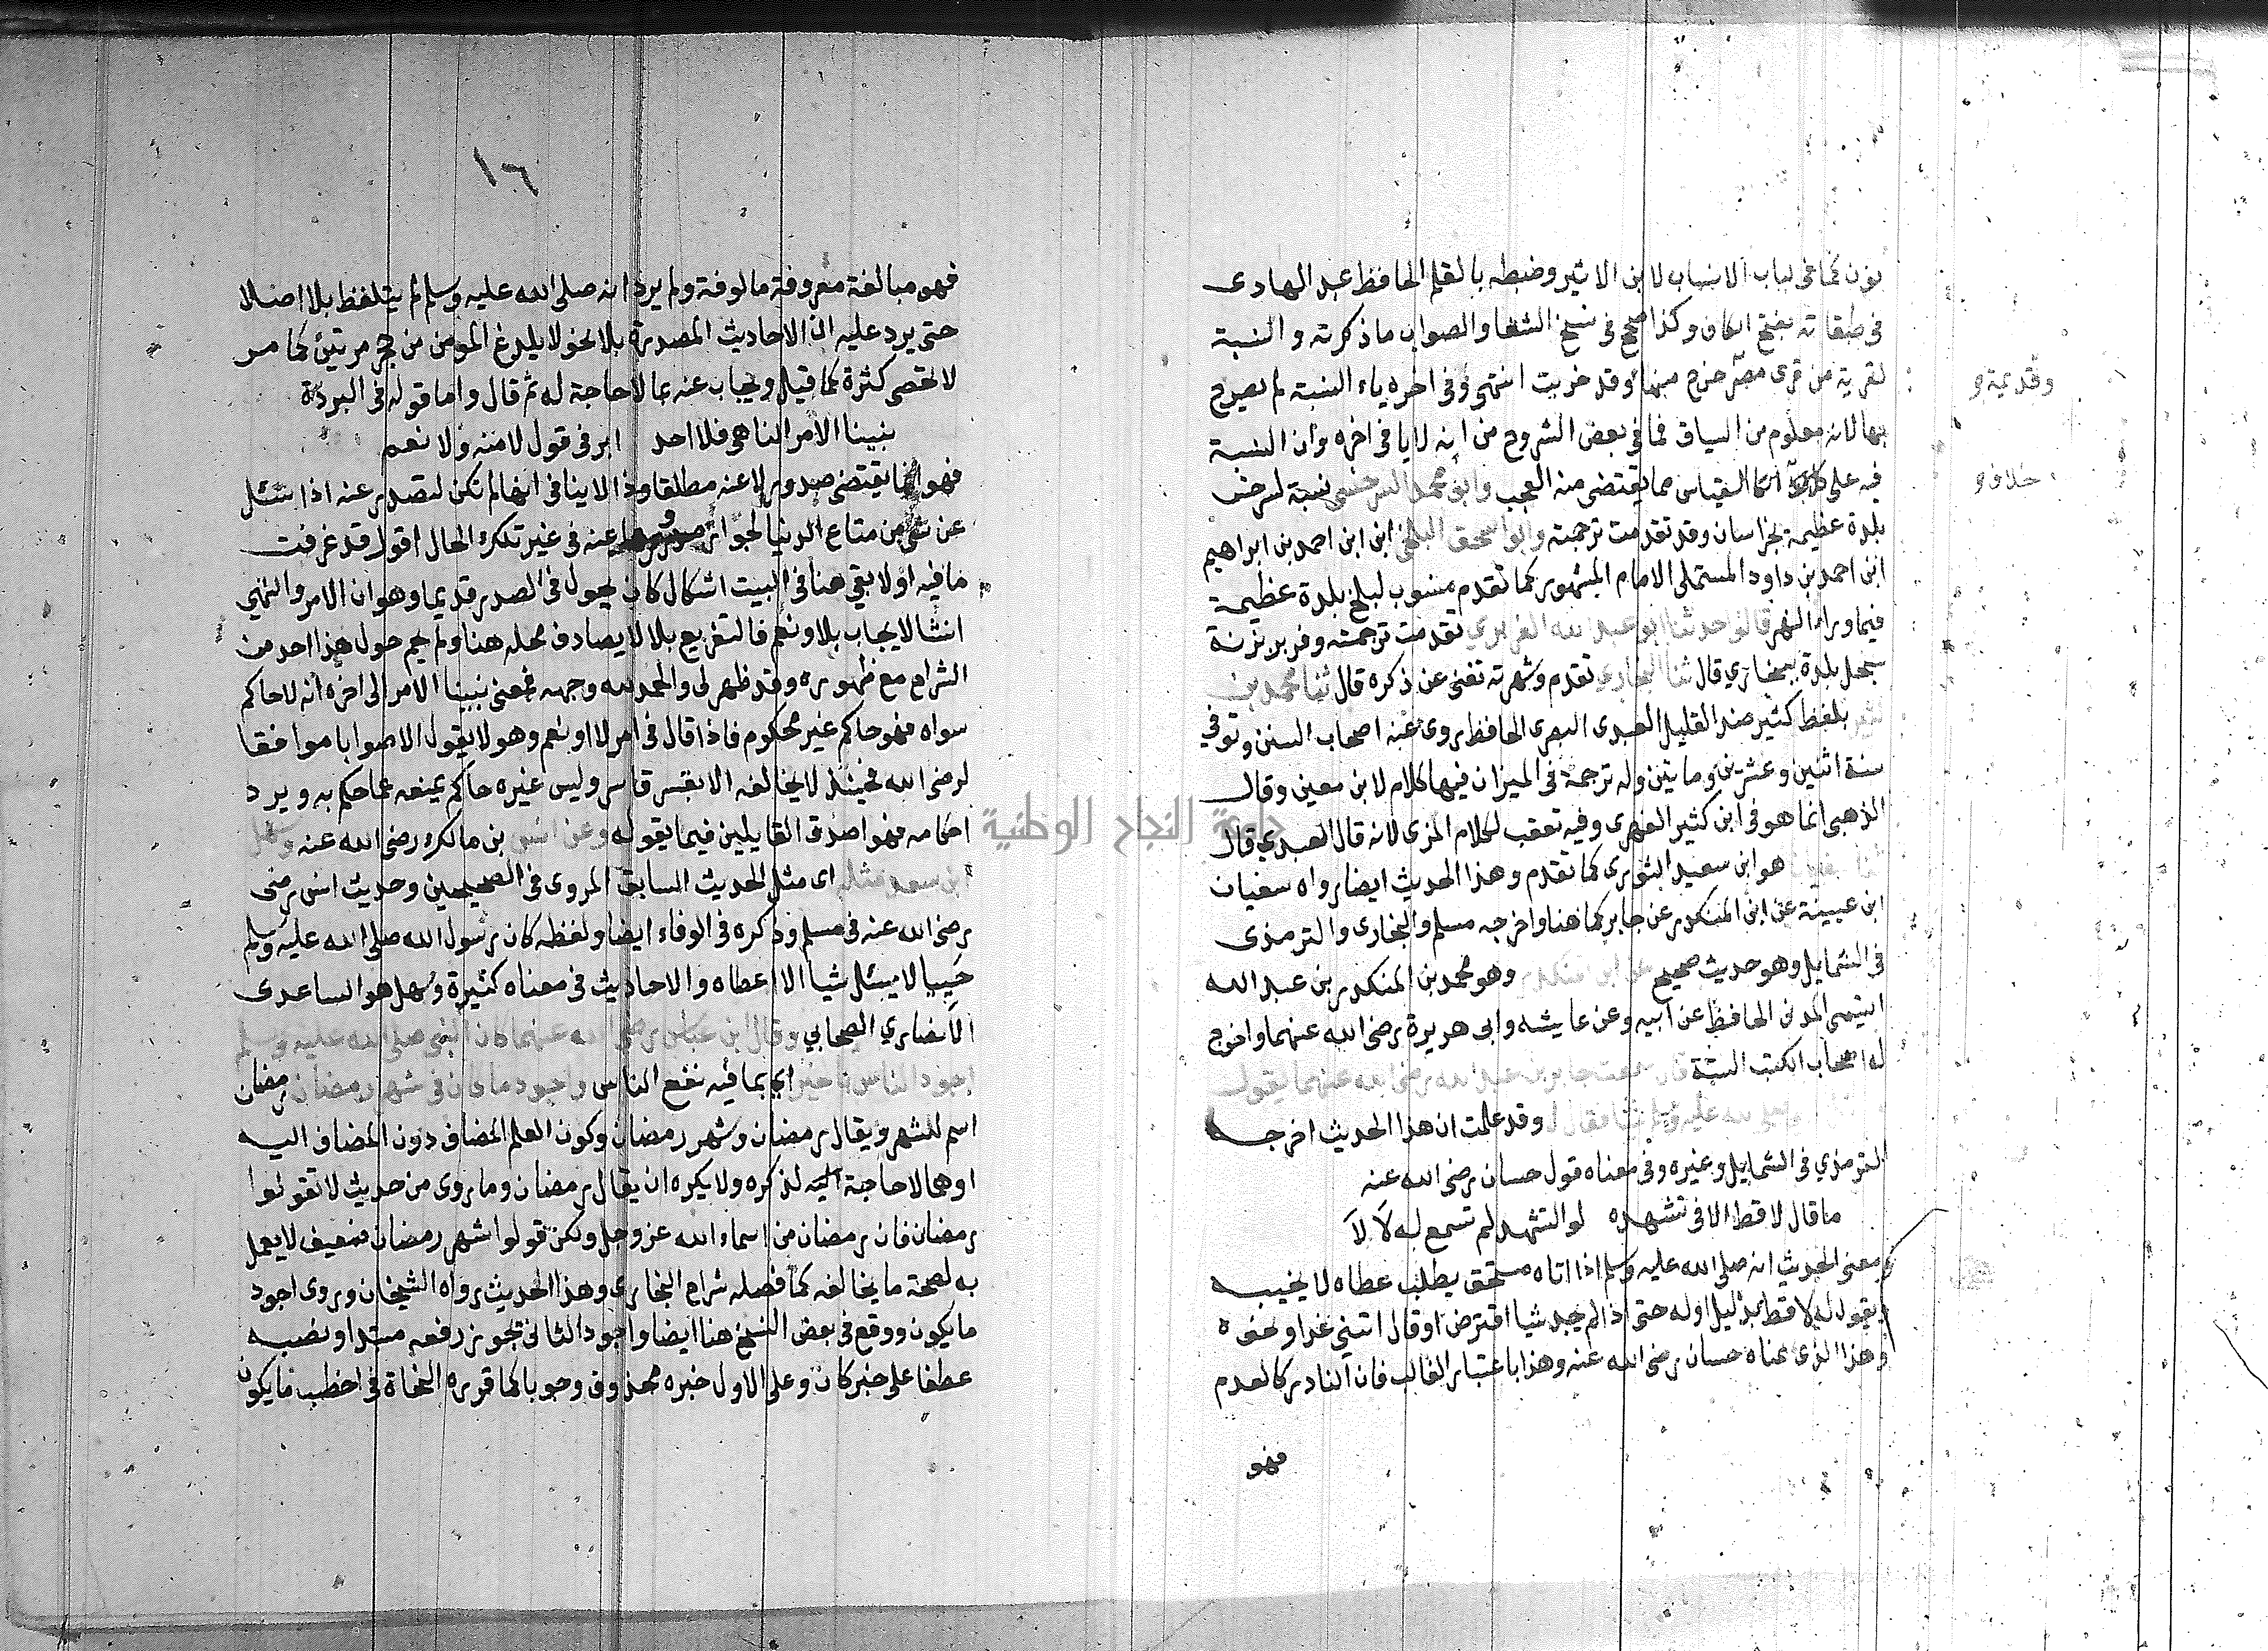 نون كما فى لباب الانساب لابن الاثير وضبطه بالقلم الحافظ عبد الهادى
فى طبقاته بفتح الكان وكذا صحح فى نسخ الشفا والصواب ما ذكرته والنسبة
لقرية من قرى مصر خرج منها وقد خربت انتهى وفى اخره ياء النسبة لم يصرح
بها لانه معلوم من السياق فما فى بعض الشروح من انه لا يا فى اخره وان النسبة
فيه على القياس مما يقتضى منه العجب وابو محمد السرخسى نسبة لسرخس
بلدة عظيمة بخراسان وقد تقدمت ترجمته وابو اسحق البلخى ابن ابن احمد بن ابراهيم
ابن احمد بن داود المستملى الامام المشهور كما تقدم منسوب لبلخ بلدة عظيمة
فيما وراء النهر قالوا حدثنا ابو عبد الله الفربري تقدمت ترجمته وفربر بزنة
سجل بلدة ببخارى قال ثنا البخارى تقدم وشهرته تغنى عن ذكره قال ثنا محمد بن
كثير بلفظ كثير ضد القليل العبدى البصرى الحافظ روى عنه اصحاب السنن وتوفى
سنة اثنين وعشرين ومايتين وله ترجمة فى الميزان فيها كلام لابن معين وقال
الذهبى انما هو فى ابن كثير الفهرى وفيه تعقب لكلام المزى لانه قال العبدي قال
ثنا سفيان هو ابن سعيد الثورى كما تقدم وهذا الحديث ايضا رواه سفيان
ابن عيينة عن ابن المنكدر عن جابر كما هنا واخرجه مسلم والبخارى والترمذى
فى الشمايل وهو حديث صحيح عن ابن منكدر وهو محمد بن المنكدر بن عبد الله
التيمى المدنى الحافظ عن ابيه وعن عايشه وابى هريرة رضى الله عنهما واخرج
له اصحاب الكتب الستة قال سمعت جابر بن عبد الله رضى الله عنهما يقول
صلى الله عليه وسلم شيا فقال لا وقد علمت ان هذا الحديث اخرجه
الترمذي فى الشمايل وغيره وفى معناه قول حسان رضى الله عنه
ما قال لا قط الا فى تشهده لو التشهد لم تسمع له لا لا
ومعنى الحديث انه صلى الله عليه وسلم اذا اتاه مستحق يطلب عطاه لا يخيبه
ويقول له لا قط بدليل اوله حتى اذا لم يجد شيا اقترض او قال ائتينى غدا ونحوه
وهذا الذى عناه حسان رضى الله عنه وهذا باعتبار الغالب فان النادر كالعدم
فهو
وقديمة و
خلاف و
١٦
فهو مبالغة معروفة مالوفة ولم يرد انه صلى الله عليه وسلم لم يتلفظ بلا اصلا
حتى يرد عليه ان الاحاديث المصدرة بلا نحو لا يلدغ المومن من جحر مرتين كما مر
لا تحصى كثرة كما قيل ويجاب عنه بما لا حاجة له ثم قال واما قوله فى البردة
نبينا الآمر الناهى فلا احد ابر فى قول لا منه ولا نعم
فهو انما يقتضى صدور لا عنه مطلقا وذا لا ينافى انها لم تكن لتصدر عنه اذا سئل
عن شى من متاع الدنيا لجواز صدورها عنه فى غير تلك الحال اقول قد عرفت
ما فيه اولا بقى هنا فى البيت اشكال كان يجول فى الصدر قديما وهو ان الامر والنهى
انشا لا يجاب بلا ونعم فالتفريع بلا لا يصادف محله هنا ولم يحم حول هذا احد من
الشراح مع ظهوره وقد ظهر لى والحمد لله وجهه فمعنى نبينا الامر الى اخره انه لا حاكم
سواه فهو حاكم غير محكوم فاذا قال فى امر لا او نعم وهو لا يقول الا صوابا موافقا
لرضى الله فحينئذ لا يخالفه الا بقسر قاسر وليس غيره حاكم يمنعه عما حكم به ويرد
احكامه فهو اصدق القايلين فيما يقوله وعن انس بن مالك رضى الله عنه وسهل
ابن سعد مثله اى مثل الحديث السابق المروى فى الصحيحين وحديث انس رضى
رضى الله عنه فى مسلم وذكره فى الوفاء ايضا ولفظه كان رسول الله صلى الله عليه وسلم
حييا لا يسئل شيا الا اعطاه والاحاديث فى معناه كثيرة وسهل هو الساعدى
الانصاري الصحابي وقال ابن عباس رضى الله عنهما كان النبى صلى الله عليه وسلم
اجود الناس بالخير اى بما فيه نفع الناس واجود ما كان فى شهر رمضان رمضان
اسم للشهر ويقال رمضان وشهر رمضان وكون العلم المضاف دون المضاف اليه
او هما لا حاجة اليه لذكره ولا يكره ان يقال رمضان وما روى من حديث لا تقولوا
رمضان فان رمضان من اسماء الله عز وجل ولكن قولوا شهر رمضان فضعيف لا يعمل
به لصحة ما يخالفه كما فصله شراح البخارى وهذا الحديث رواه الشيخان وروى اجود
ما يكون ووقع فى بعض النسخ هنا ايضا واجود الثانى تجوز رفعه مبتدا ونصبه
عطفا على خبر كان وعلى الاول خبره محذوف وجوبا كما قرره النحاة فى اخطب ما يكون
جامعة النجاح الوطنية